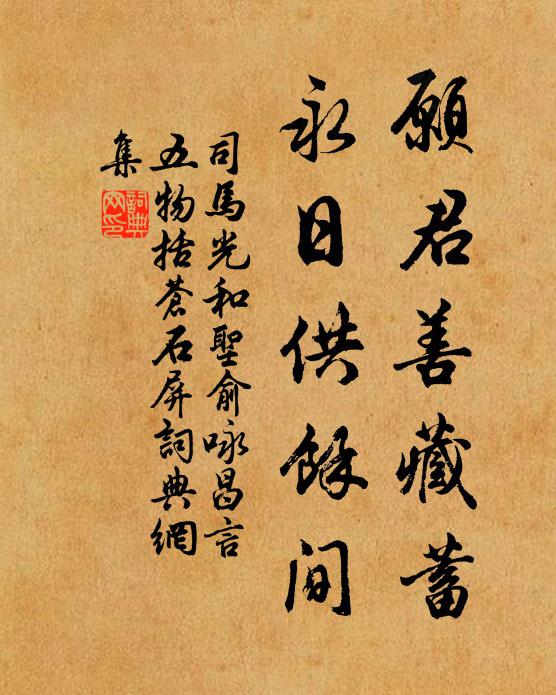 願君善藏蓄
永日供餘间
司馬光和聖俞咏昌言
五物括蒼石屏詞典網
集
詞典
网印